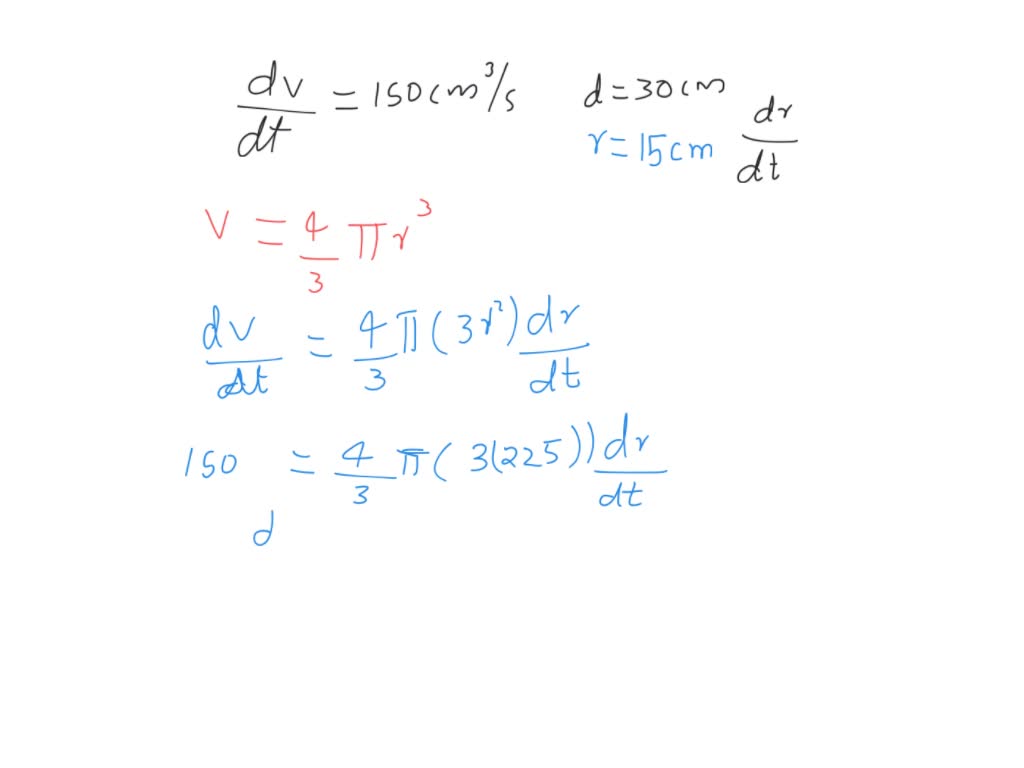 dv/dt = 150cm³/s d=30cm dr/dt
r=15cm
V = 4/3 πr³
dv/dt = 4/3 π(3r²) dr/dt
150 = 4/3 π(3(225)) dr/dt
d